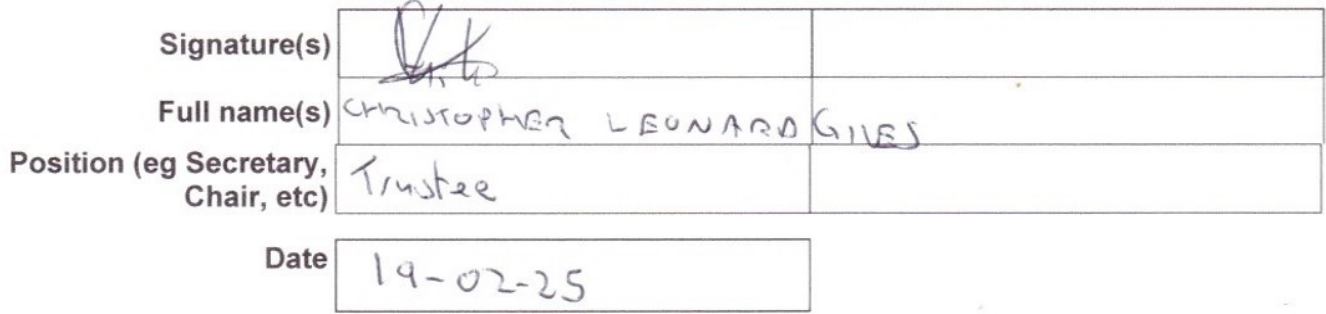 Signature(s)
Full name(s) CHRISTOPHER LEONARD GILES
Position (eg Secretary, Chair, etc) Trustee
Date 19-02-25